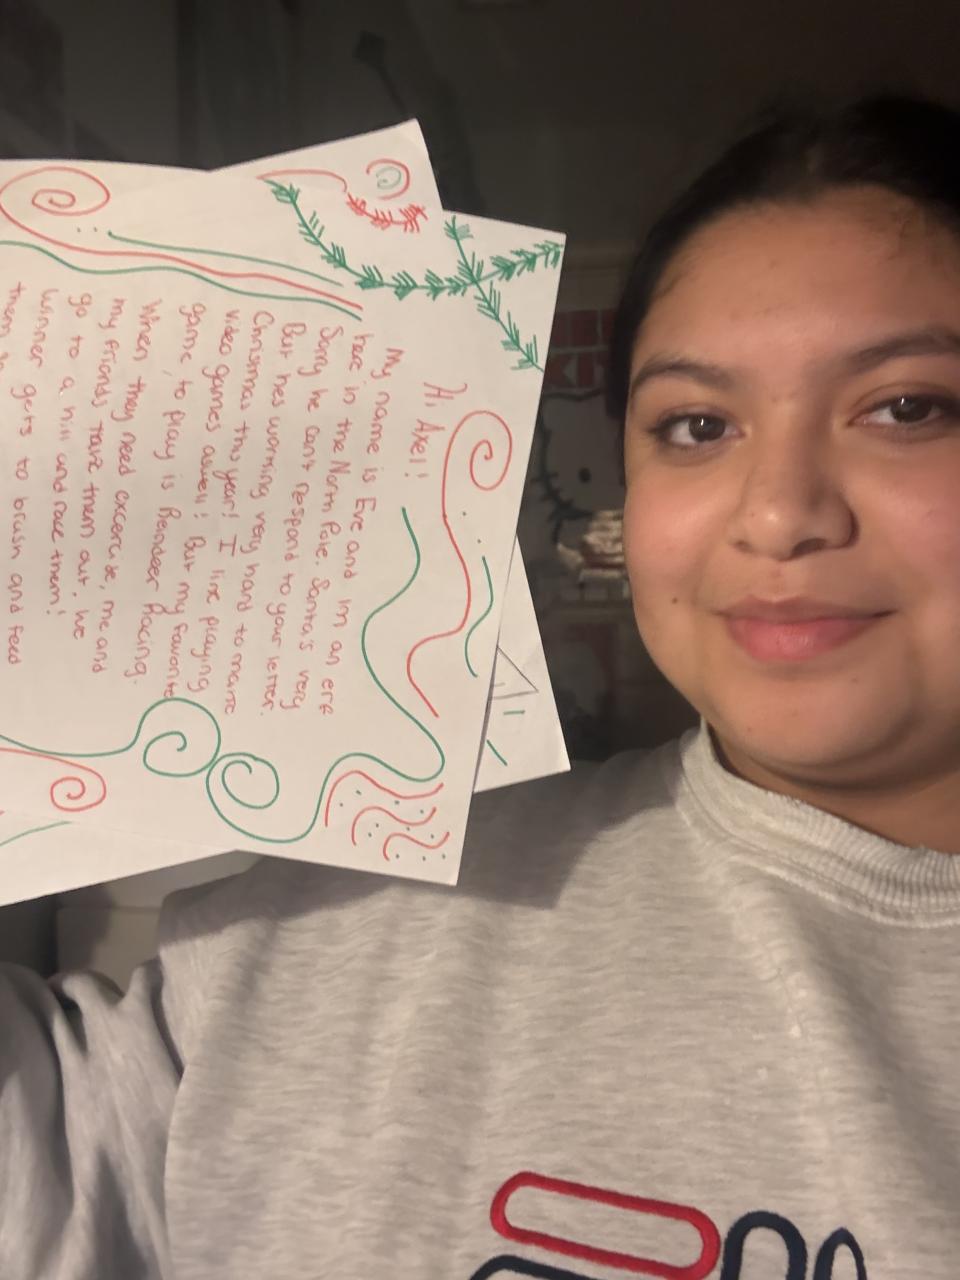 Hi Axel!
My name is Eve and Im an erf
here in the North Pole. Santa's very
Sorry he can't respond to your letter.
But hes working very hard to make
Christmas this year! I like playing
video games aswell! But my favorite
game, to play is Reindeer Racing.
When they need excercise, me and
my friends take them out. We
go to a hill and race them!
Winner gets to brush and feed
them